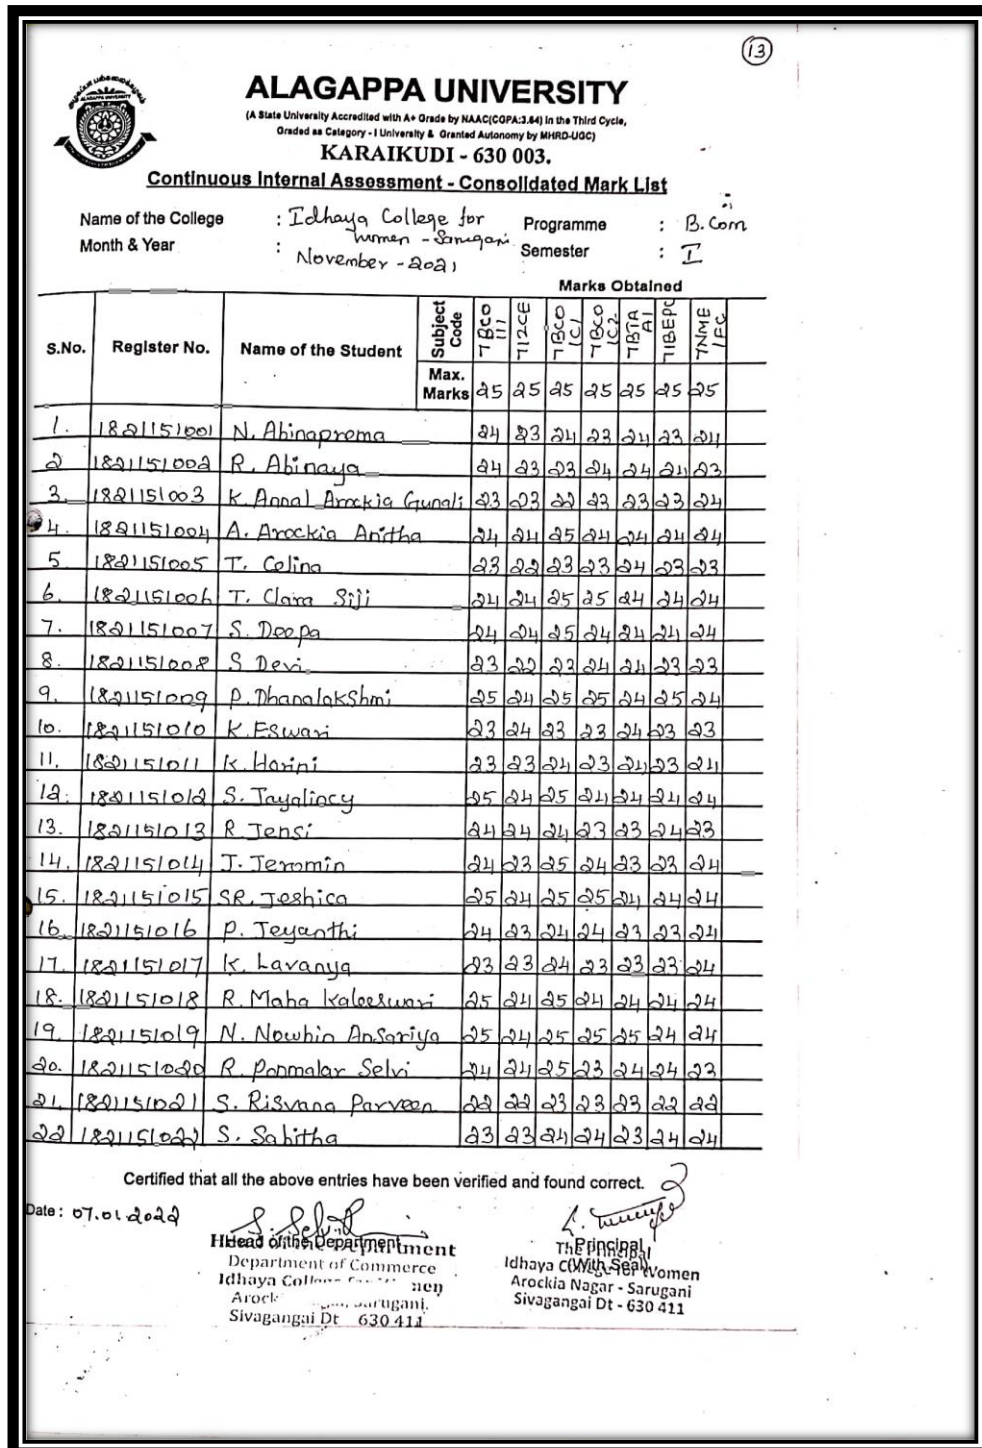 13
ALAGAPPA UNIVERSITY
(A State University Accredited with A+ Grade by NAAC(CGPA:3.64) in the Third Cycle,
Graded as Category - I University & Granted Autonomy by MHRD-UGC)
KARAIKUDI - 630 003.
Continuous Internal Assessment - Consolidated Mark List
Name of the College : Idhaya College for Women - Sarugani Programme : B.Com
Month & Year : November - 2021 Semester : I
Marks Obtained
S.No. Register No. Name of the Student Subject Code TBCO 111 T12CE TBCO 1C1 TBCO 1C2 TBTA A1 T1BEPC TNME 1FC
Max. Marks 25 25 25 25 25 25 25
1. 1821151001 N. Abinaprema 24 23 24 23 24 23 24
2 1821151002 R. Abinaya 24 23 23 24 24 24 23
3. 1821151003 K. Annal Arockia Gunali 23 23 22 23 23 23 24
4. 1821151004 A. Arockia Anitha 24 24 25 24 24 24 24
5 1821151005 T. Celina 23 22 23 23 24 23 23
6. 1821151006 T. Clara Siji 24 24 25 25 24 24 24
7. 1821151007 S. Deepa 24 24 25 24 24 24 24
8. 1821151008 S Devi 23 22 23 24 24 23 23
9. 1821151009 P. Dhanalakshmi 25 24 25 25 24 25 24
10. 1821151010 K. Eswari 23 24 23 23 24 23 23
11. 1821151011 K. Harini 23 23 24 23 24 23 24
12. 1821151012 S. Jayalincy 25 24 25 24 24 24 24
13. 1821151013 R Jensi 24 24 24 23 23 24 23
14. 1821151014 J. Jeromin 24 23 25 24 23 23 24
15. 1821151015 SR. Jeshica 25 24 25 25 24 24 24
16. 1821151016 P. Jeyanthi 24 23 24 24 23 23 24
17. 1821151017 K. Lavanya 23 23 24 23 23 23 24
18. 1821151018 R. Maha Kaleeswari 25 24 25 24 24 24 24
19. 1821151019 N. Nowhin Ansariya 25 24 25 25 25 24 24
20. 1821151020 R. Ponmalar Selvi 24 24 25 23 24 24 23
21. 1821151021 S. Risvana Parveen 22 22 23 23 23 22 22
22 1821151022 S. Sabitha 23 23 24 24 23 24 24
Certified that all the above entries have been verified and found correct.
Date : 07.01.2022
Head of the Department
Department of Commerce
Idhaya
Sarugani.
Sivagangai Dt 630 411
The Principal
(With Seal)
Idhaya College for Women
Arockia Nagar - Sarugani
Sivagangai Dt - 630 411